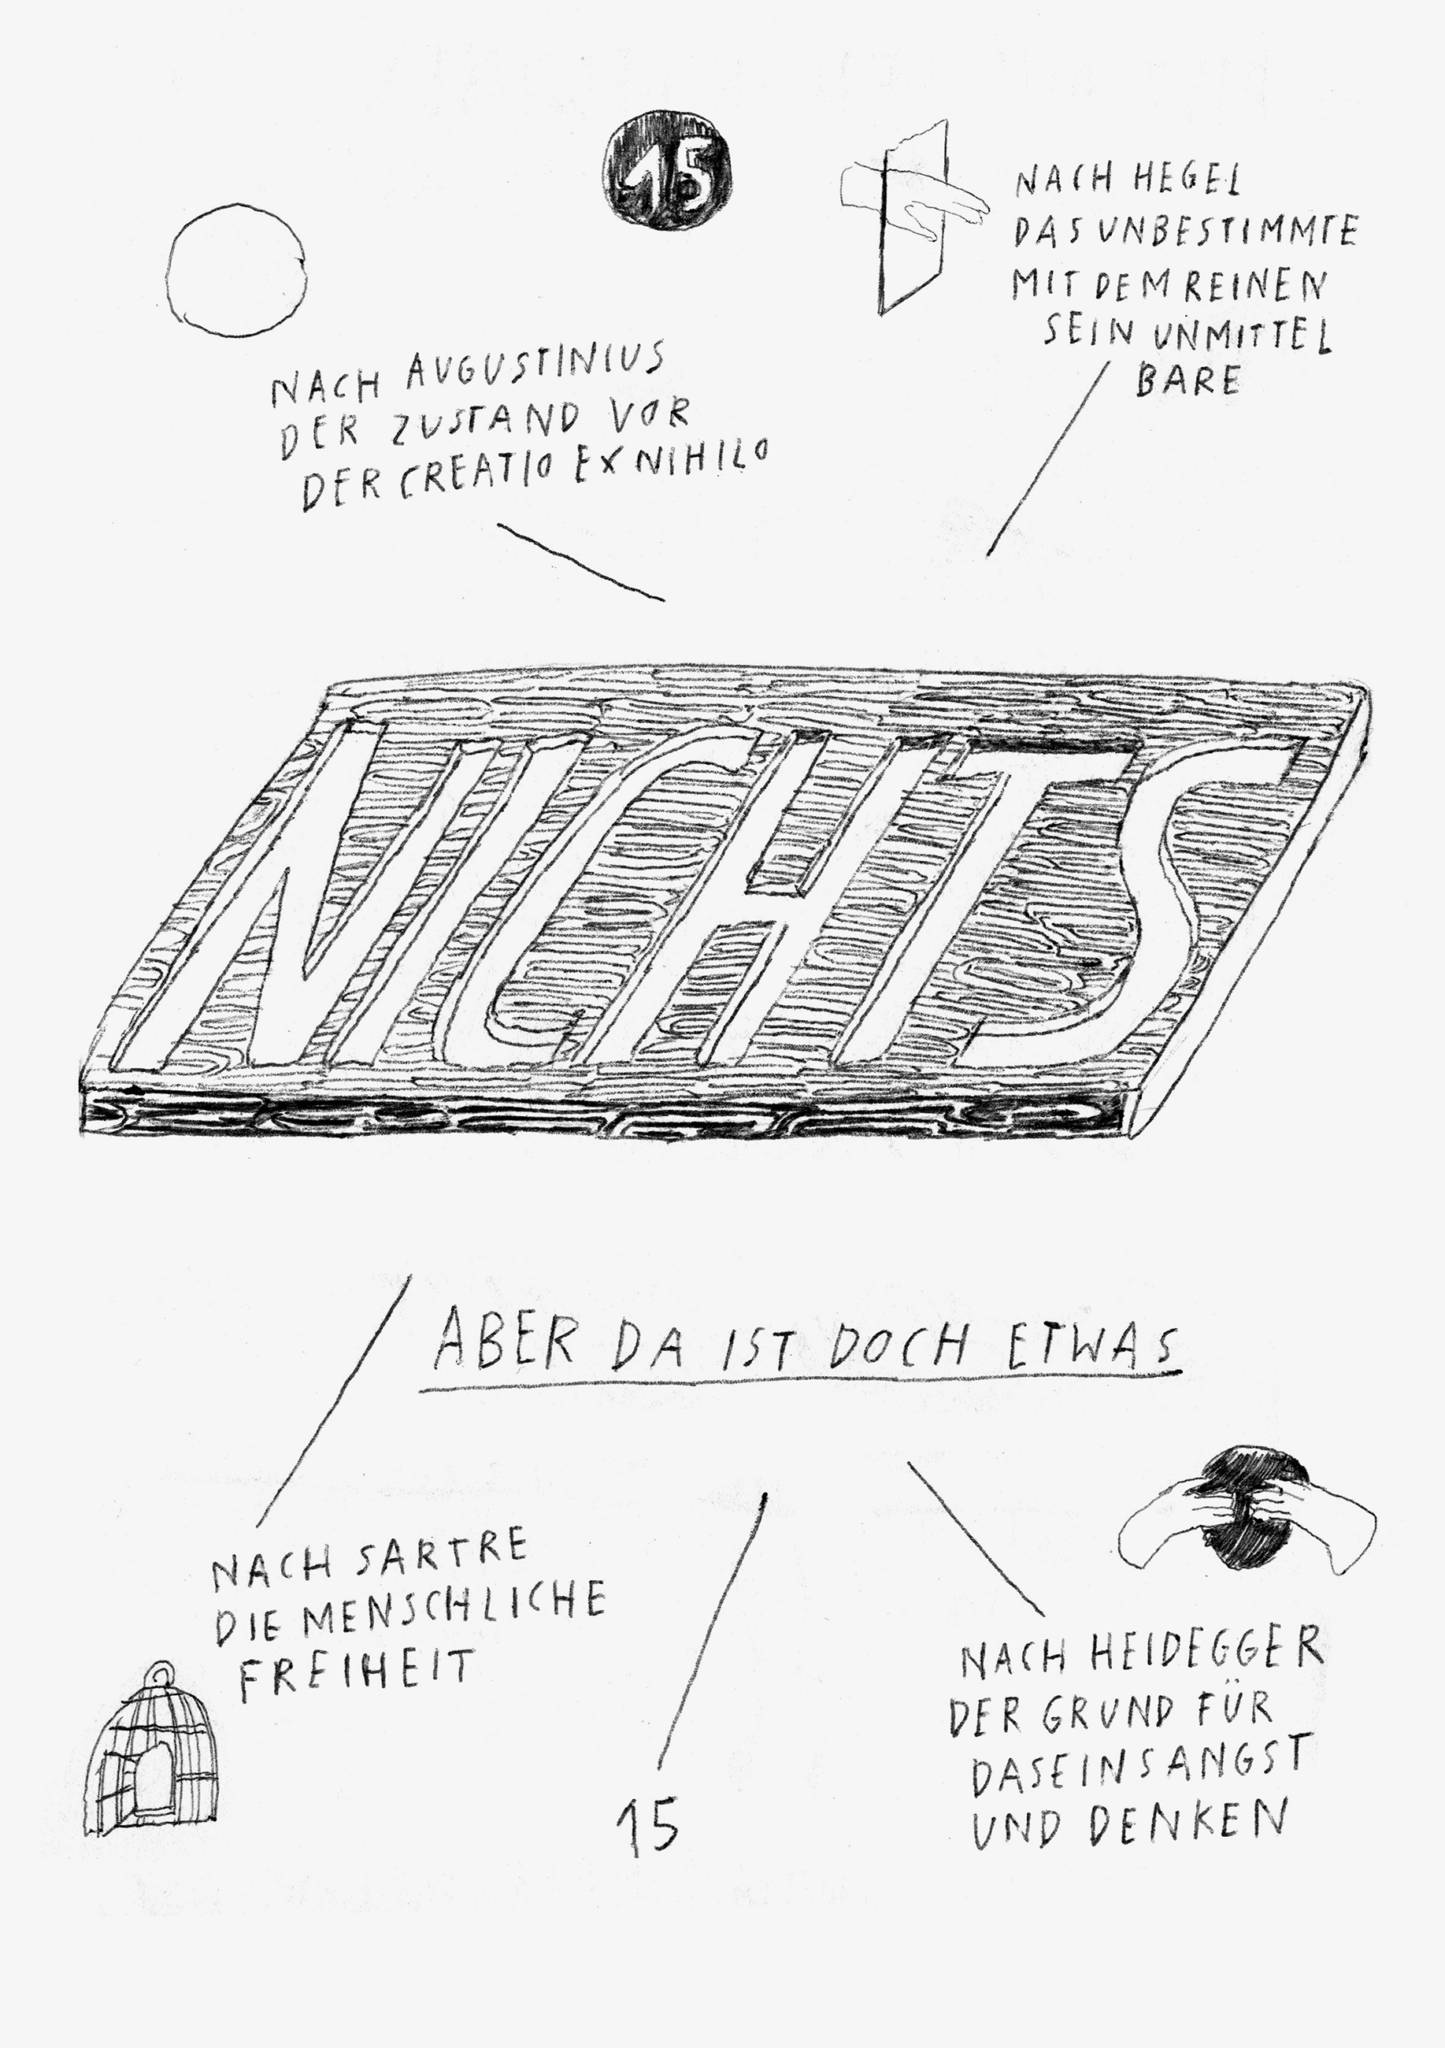 15
NACH HEGEL
DAS UNBESTIMMTE
MIT DEM REINEN
SEIN UNMITTEL
BARE
NACH AUGUSTINIUS
DER ZUSTAND VOR
DER CREATIO EX NIHILO
NICHTS
ABER DA IST DOCH ETWAS
NACH SARTRE
DIE MENSCHLICHE
FREIHEIT
NACH HEIDEGGER
DER GRUND FÜR
DASEINSANGST
UND DENKEN
15